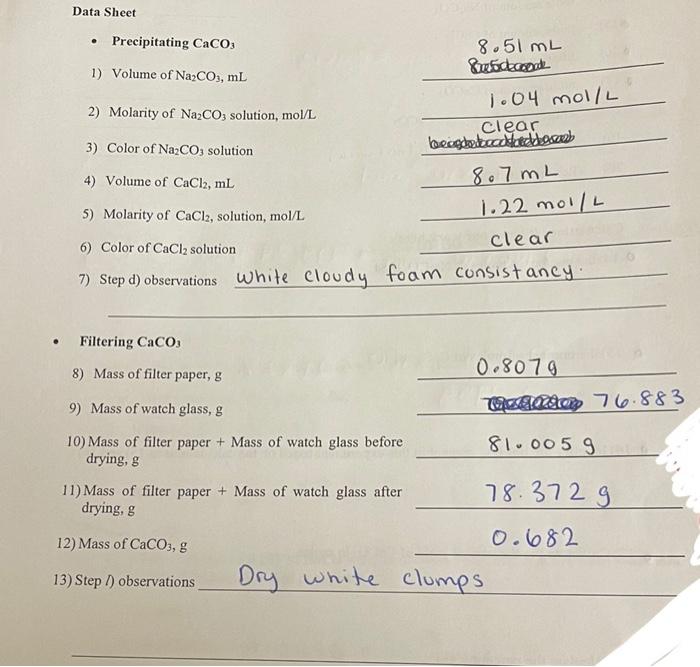 Data Sheet
• Precipitating CaCO₃
8.51 mL
1) Volume of Na₂CO₃, mL
1.04 mol/L
2) Molarity of Na₂CO₃ solution, mol/L
clear
3) Color of Na₂CO₃ solution
4) Volume of CaCl₂, mL 8.7 mL
5) Molarity of CaCl₂, solution, mol/L 1.22 mol/L
6) Color of CaCl₂ solution clear
7) Step d) observations white cloudy foam consistancy.
• Filtering CaCO₃
8) Mass of filter paper, g 0.807 g
9) Mass of watch glass, g 76.883
10) Mass of filter paper + Mass of watch glass before 81.005 g
drying, g
11) Mass of filter paper + Mass of watch glass after 78.372 g
drying, g
12) Mass of CaCO₃, g 0.682
13) Step l) observations Dry white clumps